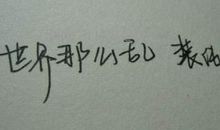 世界那么乱 装